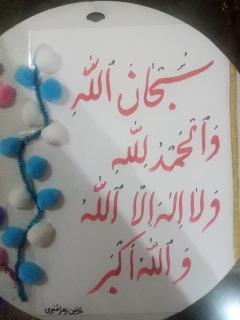 سُبْحَانَ ٱللّٰهِ
وَٱلْحَمْدُ لِلّٰهِ
وَلَا اِلٰهَ اِلَّا ٱللّٰهُ
وَٱللّٰهُ اَکْبَرُ